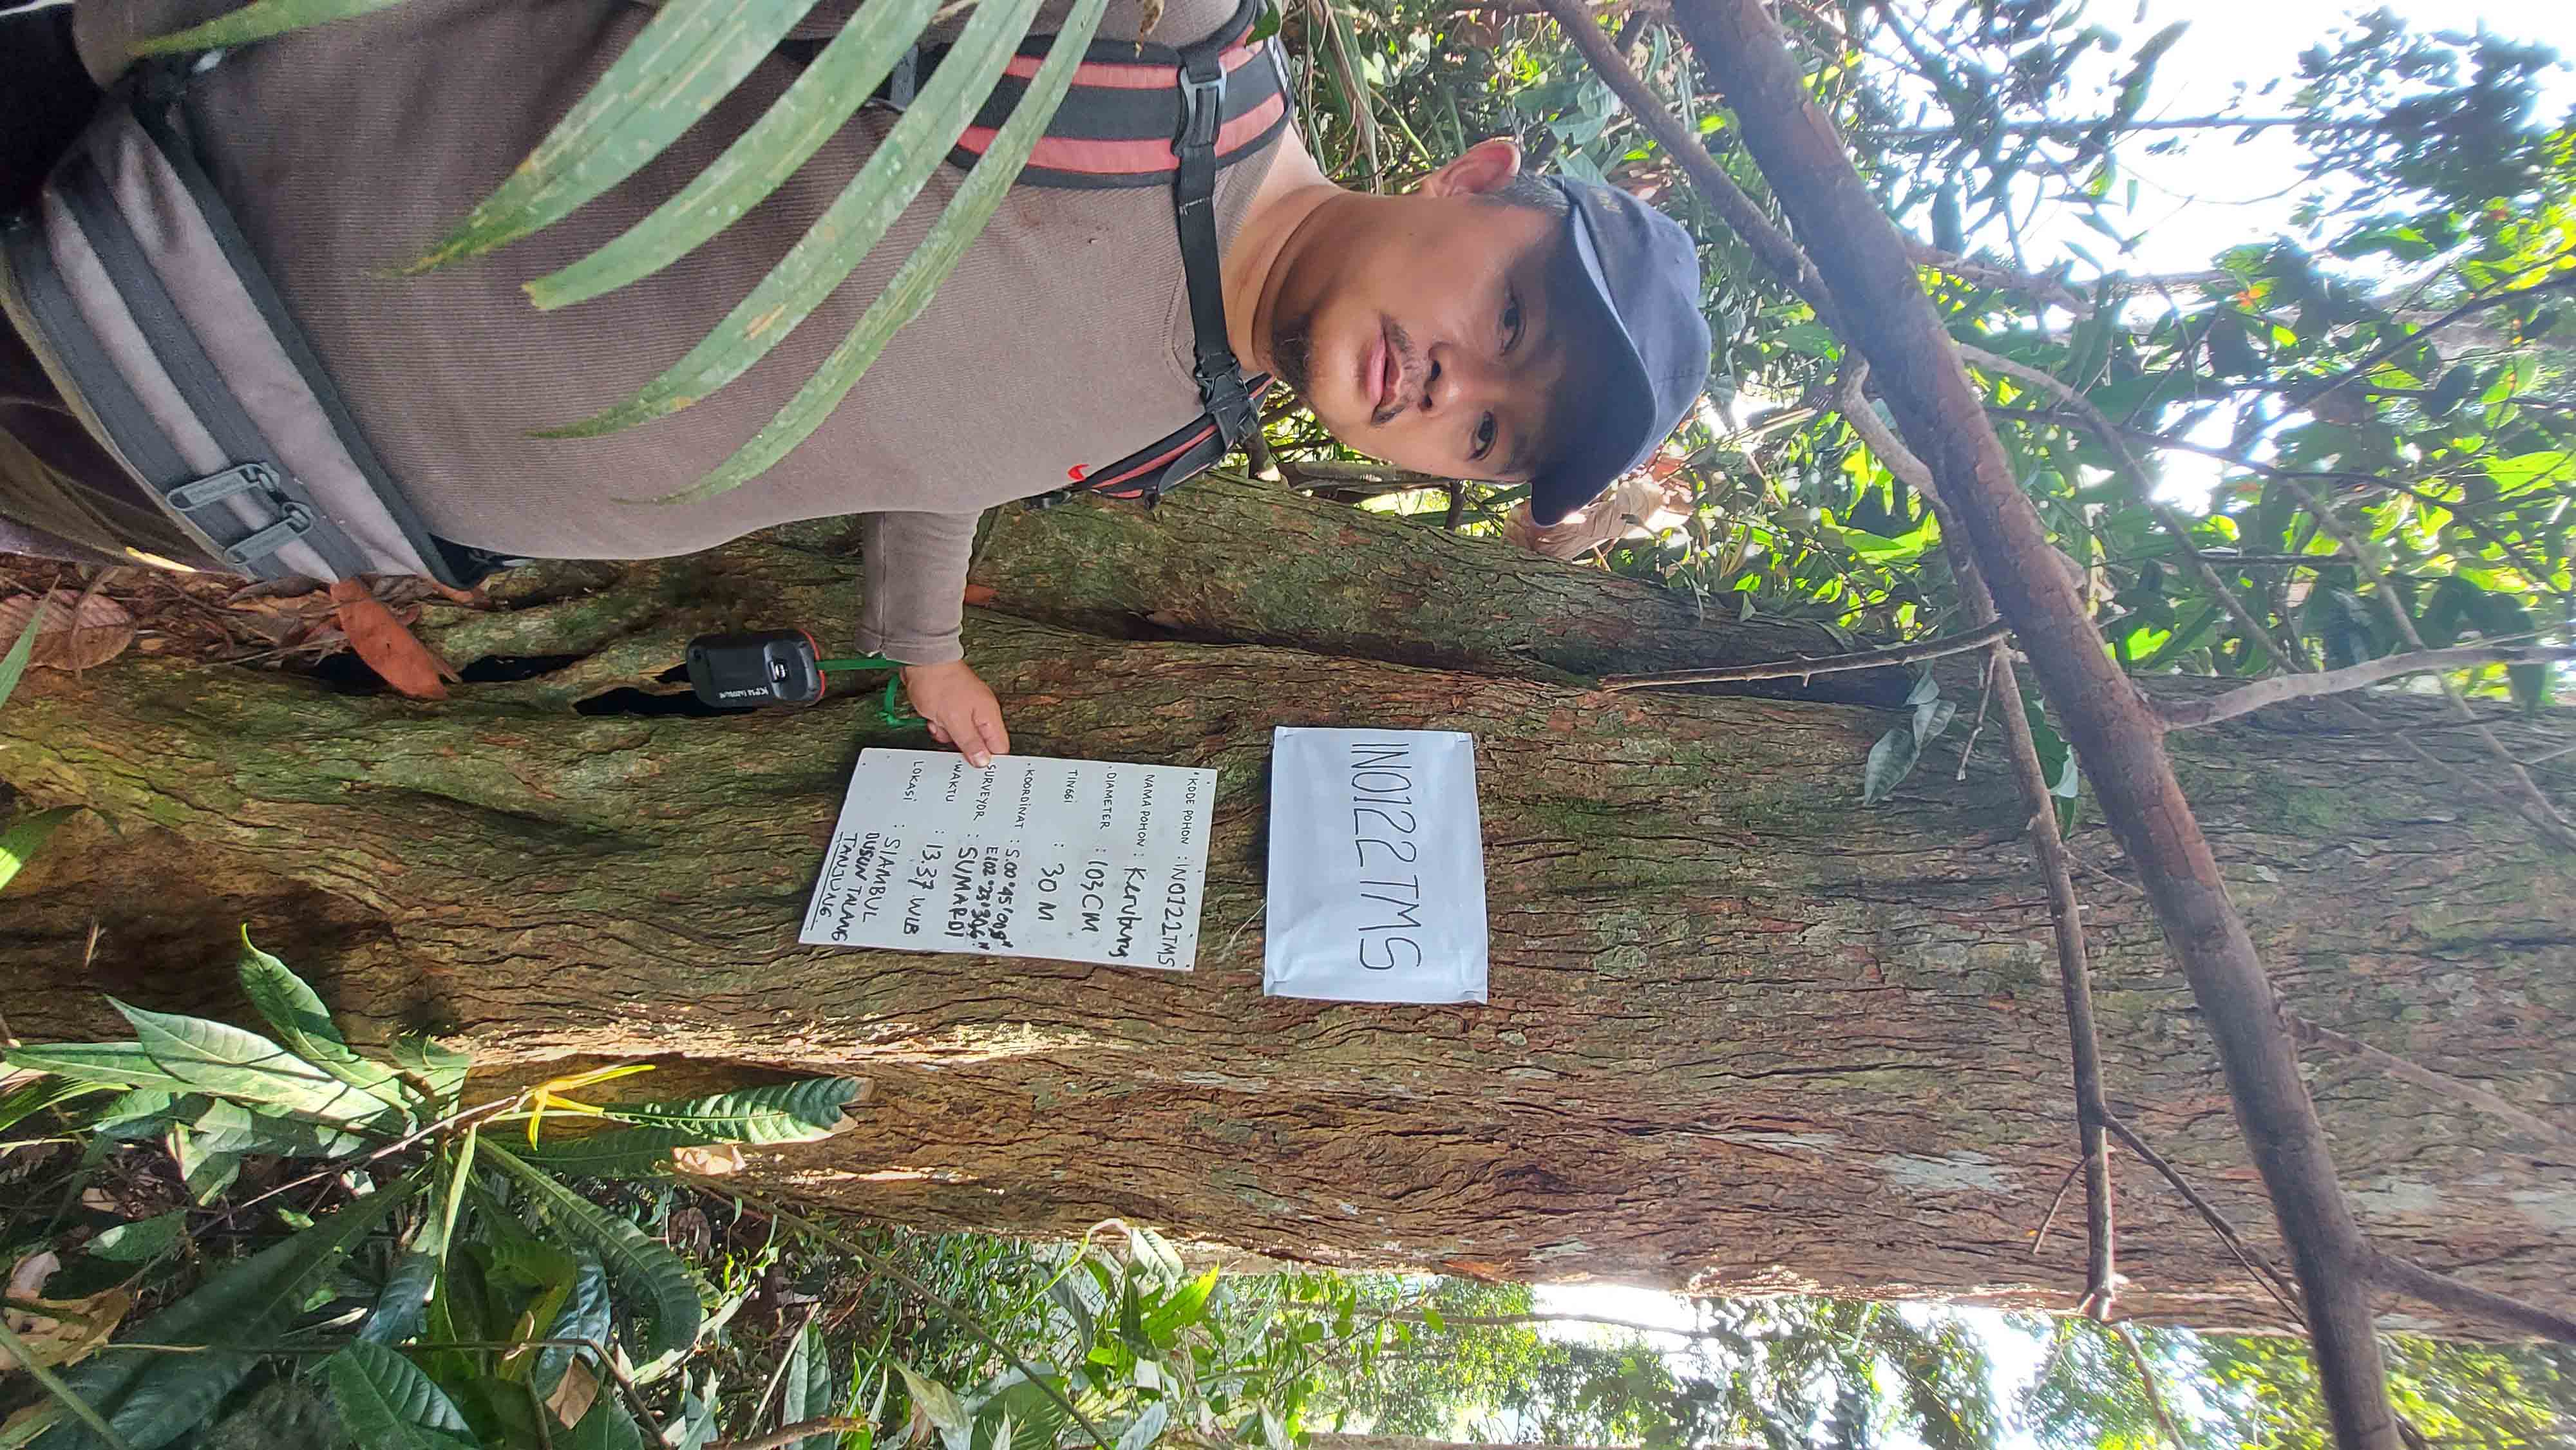 IN0122TMS
KODE POHON : IN0122TMS
NAMA POHON : Kerubung
DIAMETER : 103CM
TINGGI : 30 M
KOORDINAT : S.00°45'08"
E102°23'304"
SURVEYOR : SUMARDI
WAKTU : 13.37 WIB
LOKASI : SIAMBUL
DUSUN TALANG
TANJUNG